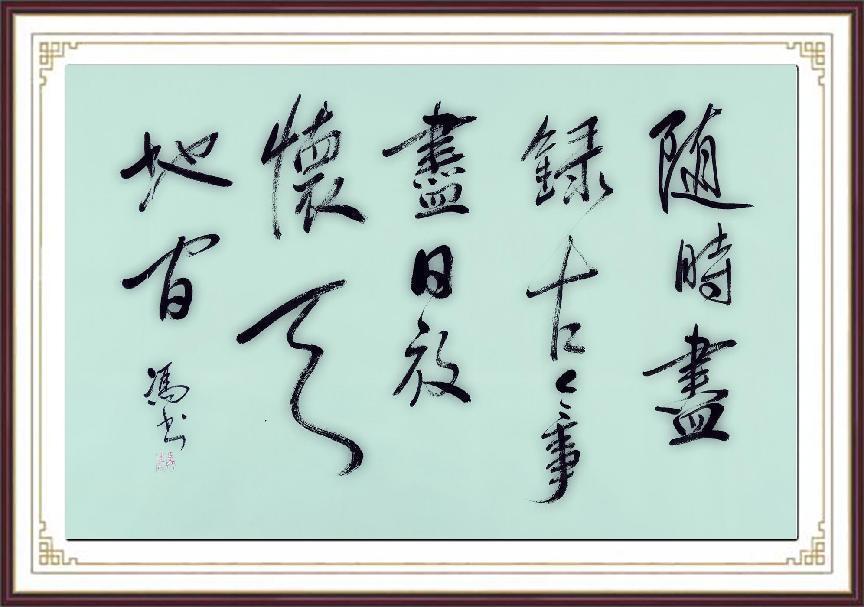 随時盡
録古今事
盡日放
懷天
地間
馮书